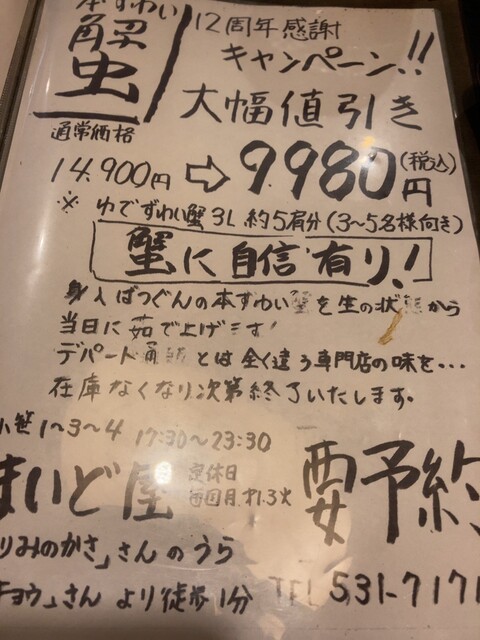 本ずわい
蟹
12周年感謝
キャンペーン!!
大幅値引き
通常価格
14.900円⇨9.980円(税込)
※ ゆでずわい蟹3L 約5肩分(3〜5名様向き)
蟹に自信有り!
身入ばつぐんの本ずわい蟹を生の状態から
当日に茹で上げます!
デパート通販とは全く違う専門店の味を・・・
在庫なくなり次第終了いたします。
小笹1〜3〜4 17:30〜23:30
まいど屋
定休日
毎月 オ1.3火
要予約
りみのかさ」さんのうら
チョウ」さんより徒歩1分
TEL 531-7171